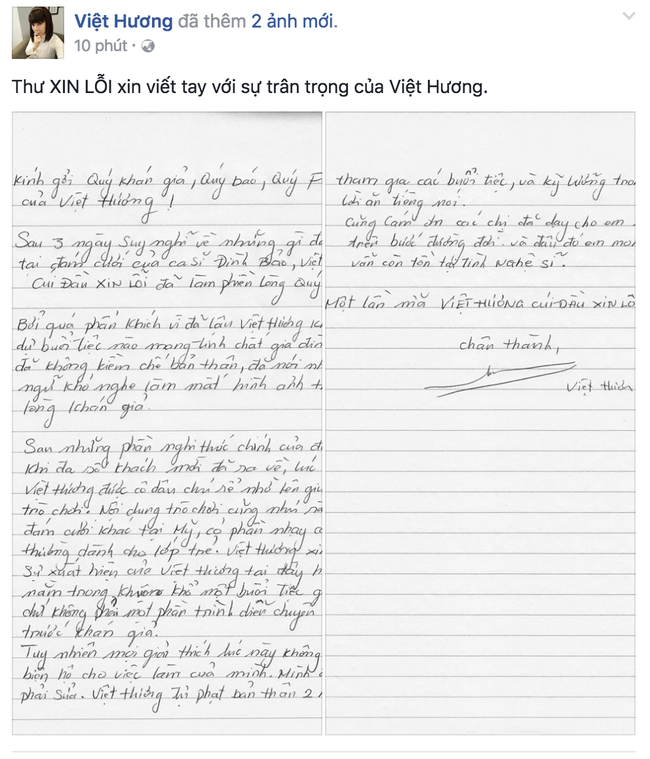 Việt Hương đã thêm 2 ảnh mới.
10 phút ·
Thư XIN LỖI xin viết tay với sự trân trọng của Việt Hương.
Kính gởi Quý khán giả, Quý báo, Quý F
của Việt Hương!
Sau 3 ngày suy nghĩ về những gì đ
tại đám cưới của ca sĩ Đinh Bảo, Việt
CÚI ĐẦU XIN LỖI đã làm phiền lòng Quý
Bởi quá phấn khích vì đã lâu Việt Hương
dự buổi tiệc nào mang tính chất gia đìn
đã không kiềm chế bản thân, đã nói nh
ngữ khó nghe làm mất hình ảnh t
lòng khán giả.
Sau những phần nghi thức chính của đ
khi đa số khách mời đã ra về, lúc
Việt Hương được cô dâu chú rể nhờ lên
trò chơi. Nội dung trò chơi cũng như
đám cưới khác tại Mỹ, có phần nhạy c
thường dành cho lớp trẻ. Việt Hương
Sự xuất hiện của Việt Hương tại đây
nằm trong khuôn khổ một buổi tiệc g
chứ không phải một phần trình diễn chuyên
trước khán giả.
Tuy nhiên mọi giải thích lúc này không
biện hộ cho việc làm của mình. Mình
phải sửa. Việt Hương tự phạt bản thân 2
tham gia các buổi tiệc, và kỹ lưỡng tro
lời ăn tiếng nói.
Cũng cám ơn các chị đã dạy cho em
trên bước đường đời. và đâu đó em
vẫn còn tồn tại tình nghệ sĩ.
Một lần nữa VIỆT HƯƠNG CÚI ĐẦU XIN LỖ
chân thành,
Việt Hươn